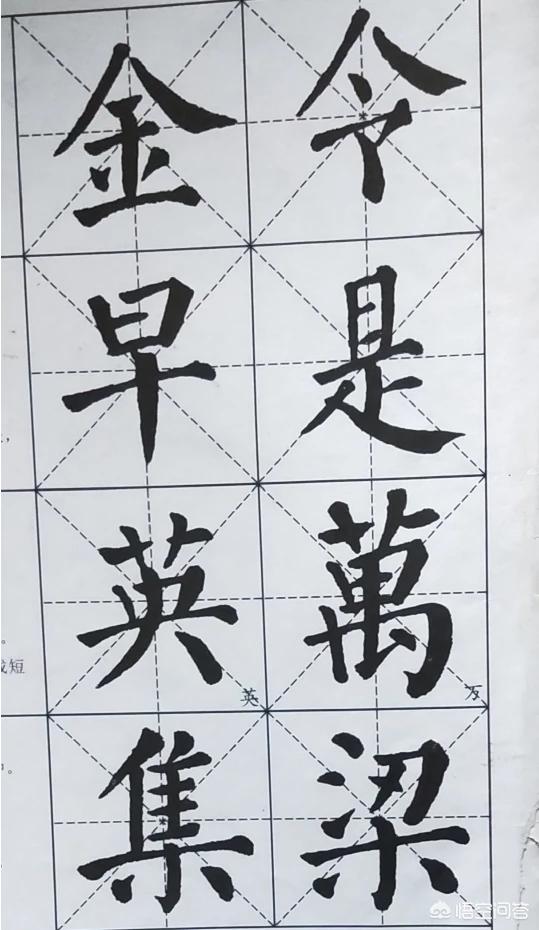 令是萬梁
金早英集
万
英
。
短
。
悟空问答